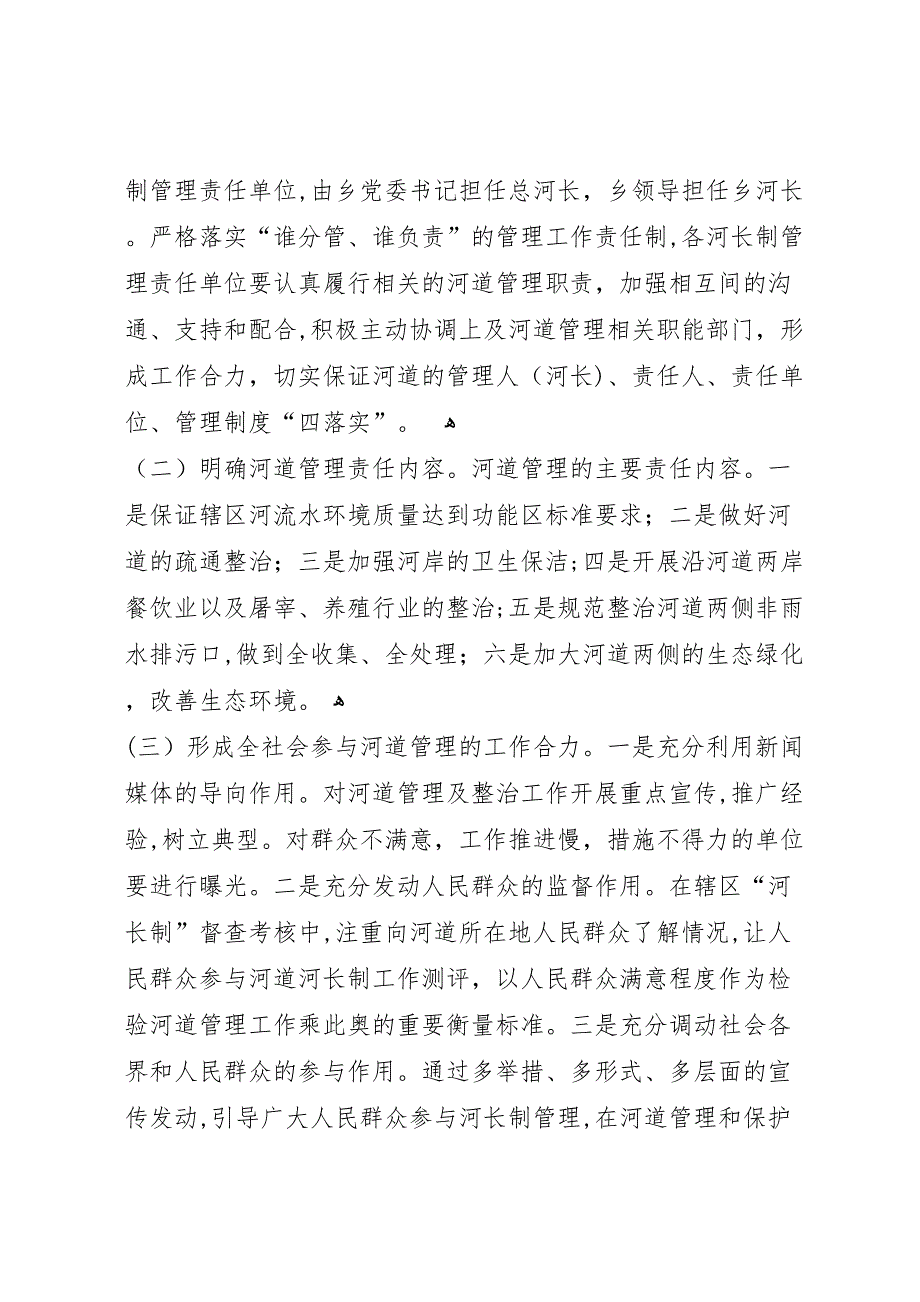 制管理责任单位,由乡党委书记担任总河长，乡领导担任乡河长
。严格落实“谁分管、谁负责”的管理工作责任制,各河长制管
理责任单位要认真履行相关的河道管理职责，加强相互间的沟
通、支持和配合,积极主动协调上及河道管理相关职能部门，形
成工作合力，切实保证河道的管理人（河长)、责任人、责任单
位、管理制度“四落实”。 ﻫ
（二）明确河道管理责任内容。河道管理的主要责任内容。一
是保证辖区河流水环境质量达到功能区标准要求；二是做好河
道的疏通整治；三是加强河岸的卫生保洁;四是开展沿河道两岸
餐饮业以及屠宰、养殖行业的整治;五是规范整治河道两侧非雨
水排污口,做到全收集、全处理；六是加大河道两侧的生态绿化
，改善生态环境。 ﻫ
(三）形成全社会参与河道管理的工作合力。一是充分利用新闻
媒体的导向作用。对河道管理及整治工作开展重点宣传,推广经
验,树立典型。对群众不满意，工作推进慢，措施不得力的单位
要进行曝光。二是充分发动人民群众的监督作用。在辖区“河
长制”督查考核中,注重向河道所在地人民群众了解情况,让人
民群众参与河道河长制工作测评，以人民群众满意程度作为检
验河道管理工作乘此奥的重要衡量标准。三是充分调动社会各
界和人民群众的参与作用。通过多举措、多形式、多层面的宣
传发动,引导广大人民群众参与河长制管理,在河道管理和保护